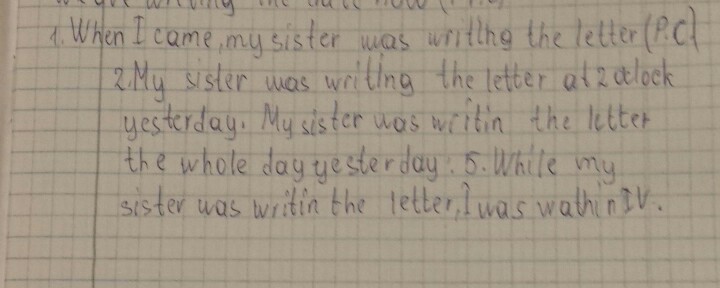 1. When I came, my sister was writing the letter (P.C)
2. My sister was writing the letter at 2 oclock
yesterday. My sister was writin the letter
the whole day yesterday. 5. While my
sister was writin the letter, I was wathin TV.